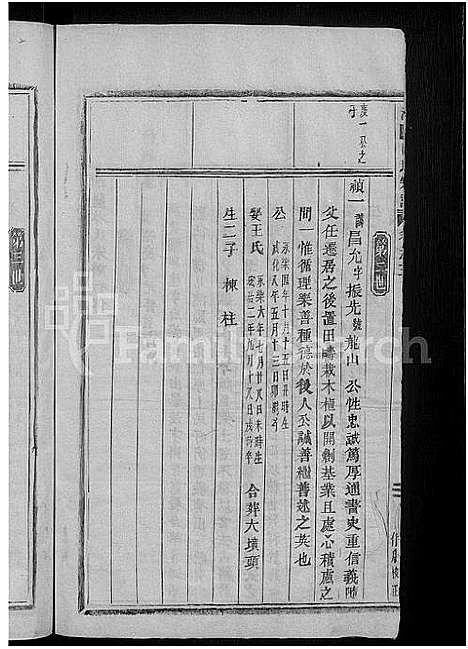 第三世
慶一公之子
禎一諱昌允字振先號龍山 公性忠誠篤厚通書史重信義
父任遷居之後置田疇栽木植以開創基業且處心積慮之
間一惟循理樂善種德於後人公誠善繼善述之英也
公 永樂四年十月十五日丑時生
成化八年五月十三日卯時
娶王氏 永樂六年七月廿八日未時生
二年九月十八日戌時卒
合葬大墳頭
生二子 棟 柱
第三世
FamilySearch